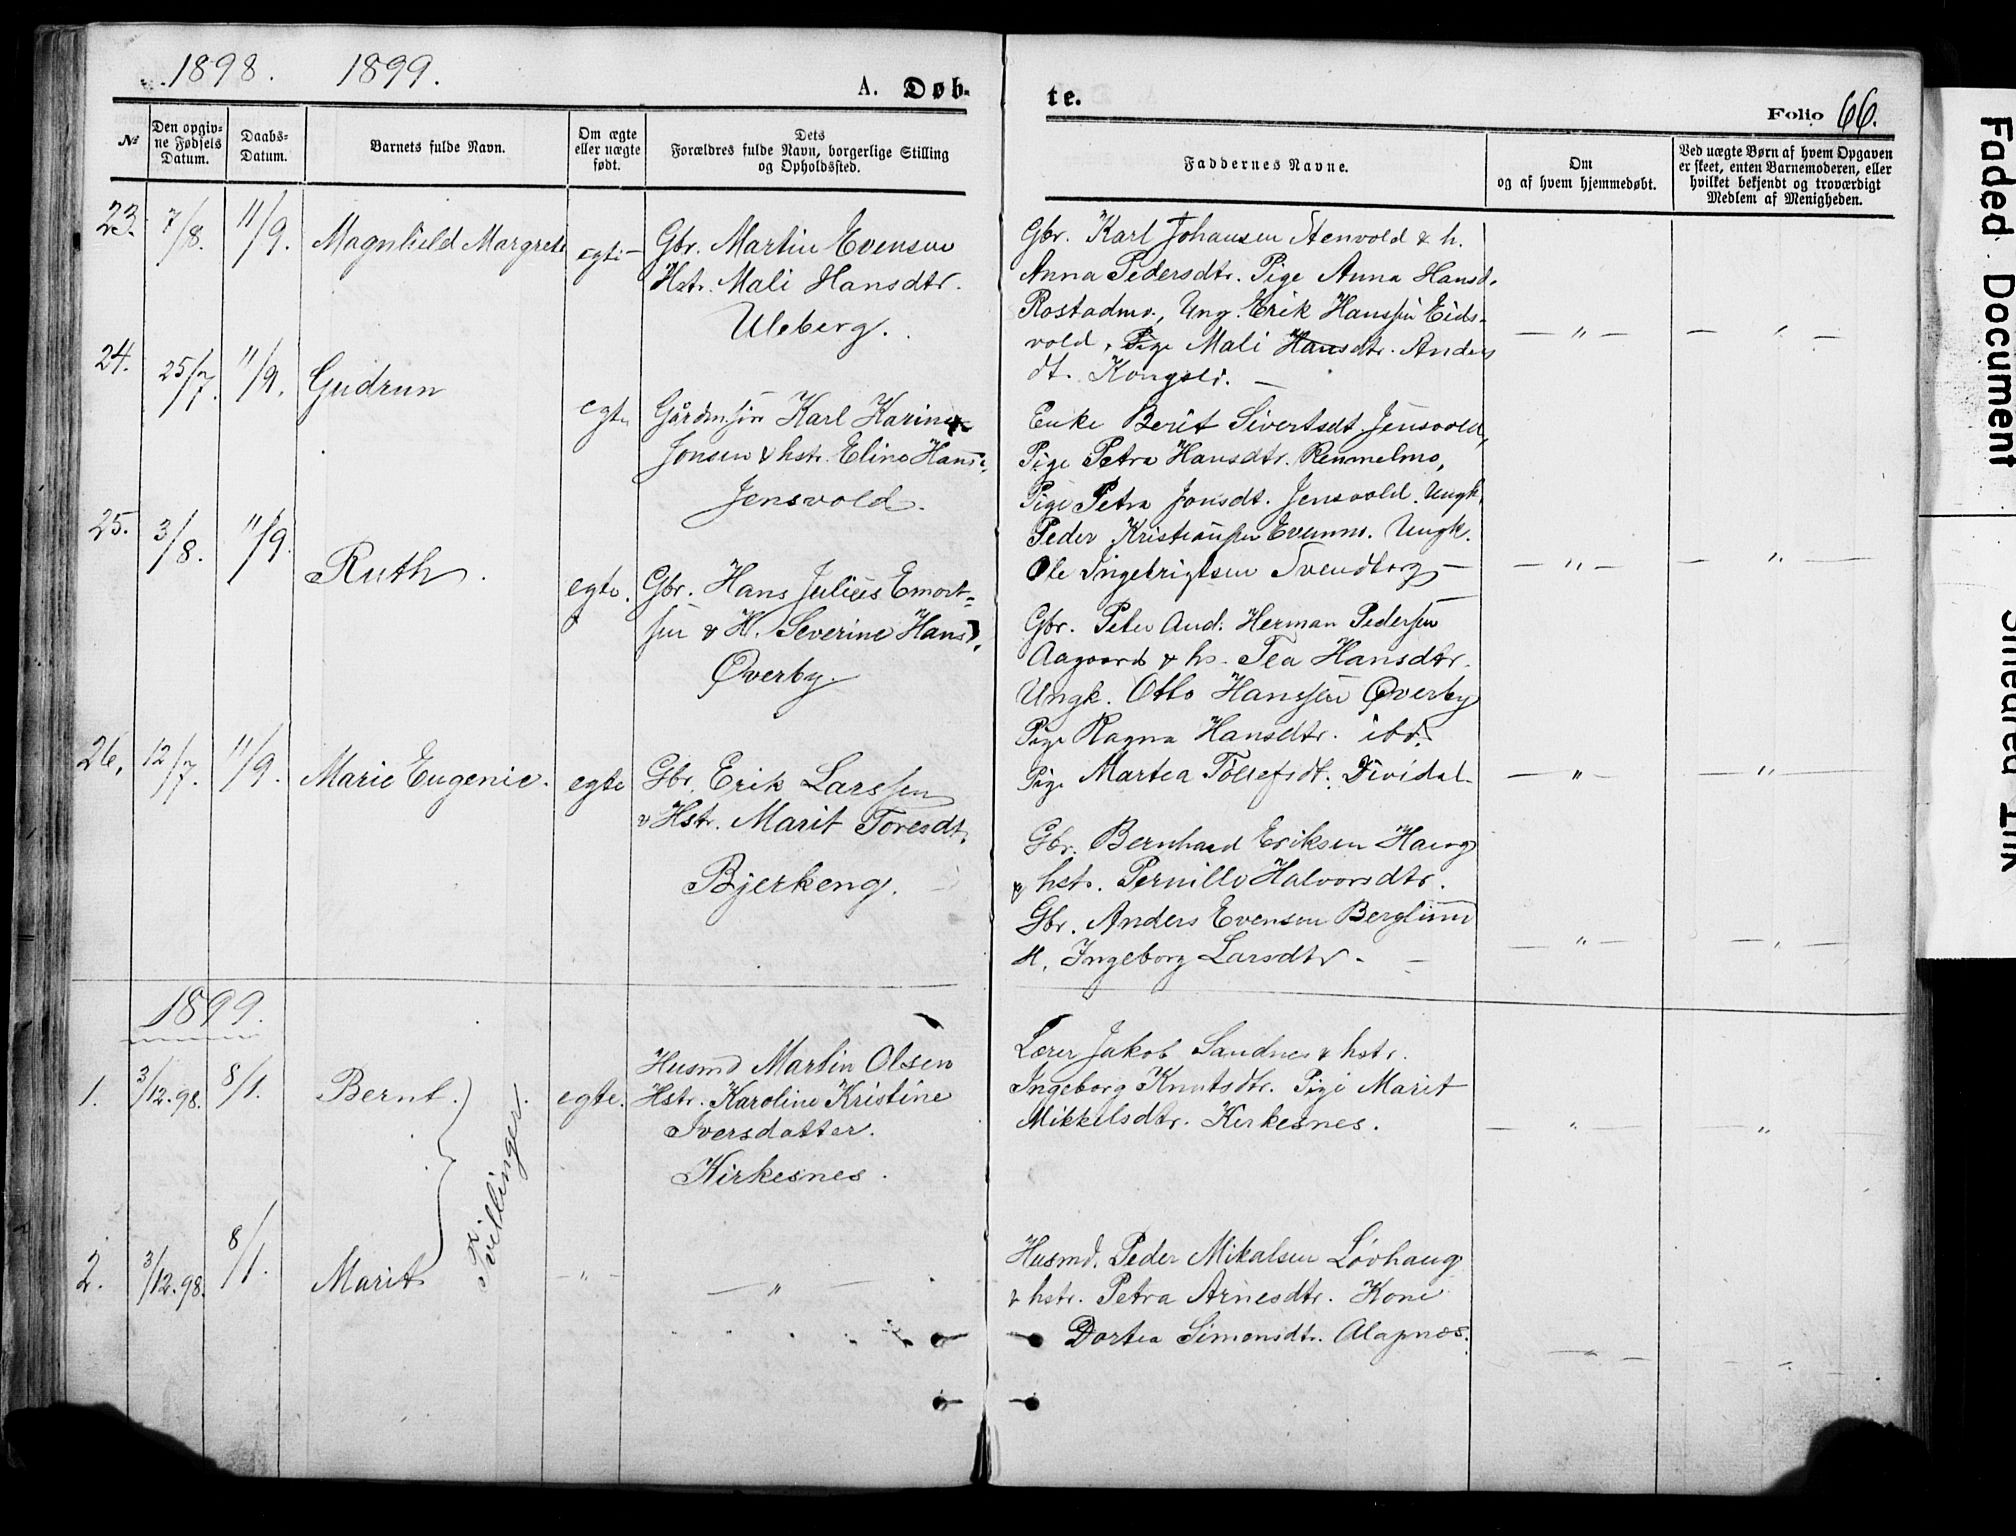 1898. 1899.
A. Døb-
te.
Folio 66.
No
Den opgiv-
ne Fødsels
Datum.
Daabs-
Datum.
Barnets fulde Navn.
Om ægte
eller uægte
født.
Dets
Forældres fulde Navn, borgerlige Stilling
og Opholdssted.
Faddernes Navne.
Om
og af hvem hjemmedøbt.
Ved uægte Børn af hvem Opgaven
er skeet, enten Barnemoderen, eller
hvilket bekjendt og troværdigt
Medlem af Menigheden.
23. 7/8. 11/9. Magnhild Margrete egte
Gbr. Martin Evensen
Hstr. Mali Hansdtr.
Uleberg.
Gbr. Karl Johansen Stenvold & h.
Anna Pedersdtr. Pige Anna Hansd.
Rostadmo., Ung. Erik Hanssen Eids-
vold, Pige Mali Hansdtr. Anders
dt. Kongsli. —
— " — — " —
24. 25/7. 11/9. Gudrun egte
Gårdm. Karl Karinus
Jonsen & hstr. Eline Hans-
Jensvold.
Enke Berit Sivertsdt. Jensvold,
Pige Petra Hansdtr. Remmelmo,
Pige Petra Jonsdt. Jensvold. Ungk.
Peder Kristiansen Evenmo. Ungk.
Ole Ingebrigtsen Svendborg —
— " — — " —
25. 3/8. 11/9. Ruth. egte.
Gbr. Hans Julius Emort-
sen & H. Severine Hans,
Øverby.
Gbr. Peter And. Herman Pedersen
Aagaard & hs. Tea Hansdtr.
Ungk. Otto Hanssen Øverby
Pige Ragna Hansdtr. ibd.
Pige Martea Tollefsdt. Dividal
— " — — " —
26. 12/7. 11/9. Marie Eugenie. egte
Gbr. Erik Larssen
& Hstr. Marit Toresdt.
Bjerkeng.
Gbr. Bernhard Eriksen Haug
& hstr. Pernille Halvorsdtr.
Gbr. Anders Evensen Berglund
H. Ingeborg Larsdtr. —
— " — — " —
1899.
1. 3/12.98. 8/1. Bernt. egte.
Husmd Martin Olsen
Hstr. Karoline Kristine
Iversdatter.
Kirkesnes.
Lærer Jakob Sandnes & hstr.
Ingeborg Knutsdtr. Pige Marit
Mikkelsdtr. Kirkesnes.
— " — "
Tvillinger
2. 3/12.98. 8/1. Marit — " — — " —
Husmd. Peder Mikalsen Løvhaug
& hstr. Petra Arnesdtr. Kone
Dortea Simonsdt. Alapnes.
Faded Document
Smeared Ink